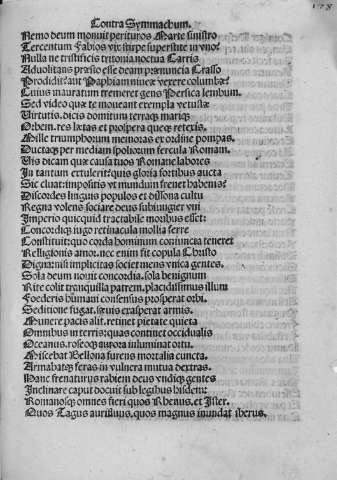 Contra Symmachum.
178
Nemo deum monuit perituros Marte sinistro
Tercentum Fabios vix stirpe superstite in vno?
Nulla ne tristificis tritonia noctua Carris
Aduolitans praesto esse deam praenuncia Crasso
Prodidit? aut Paphiam niueae vexere columbae?
Cuius inauratum tremeret gens Persica lembum.
Sed video quae te moueant exempla vetustae
Virtutis. dicis domitum terraque marique
Orbem. res laetas et prospera queque retexis.
Mille triumphorum memoras ex ordine pompas.
Ductaque per mediam spoliorum fercula Romam.
Vis dicam quae causa tuos Romane labores
In tantum extulerit? quis gloria fortibus aucta
Sic cluat: impositis vt mundum frenet habenis?
Discordes linguis populos et dissona cultu
Regna volens sociare deus subiungier vni
Imperio quicquid tractabile moribus esset:
Concordique iugo retinacula mollia ferre
Constituit: quo corda hominum coniuncta teneret
Relligionis amor. nec enim fit copula Christo
Digna: nisi implicitas societ mens vnica gentes.
Sola deum nouit concordia. sola benignum
Rite colit tranquilla patrem. placidissimus illum
Foederis humani consensus prosperat orbi.
Seditione fugat. saeuis exasperat armis.
Munere pacis alit. retinet pietate quieta
Omnibus in terris quas continet occidualis
Oceanus. roseoque aurora illuminat ortu.
Miscebat Bellona furens mortalia cuncta.
Armabatque feras in vulnera mutua dextras.
Hanc frenaturus rabiem deus vndique gentes
Inclinare caput docuit sub legibus hisdem:
Romanosque omnes fieri quos Rhenus. et Ister.
Quos Tagus aurifluus. quos magnus inundat iberus.